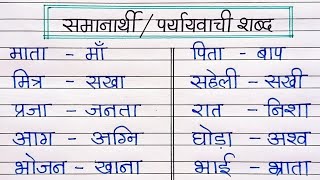 समानार्थी/पर्यायवाची शब्द
माता - माँ पिता - बाप
मित्र - सखा सहेली - सखी
प्रजा - जनता रात - निशा
आग - अग्नि घोड़ा - अश्व
भोजन - खाना भाई - भ्राता